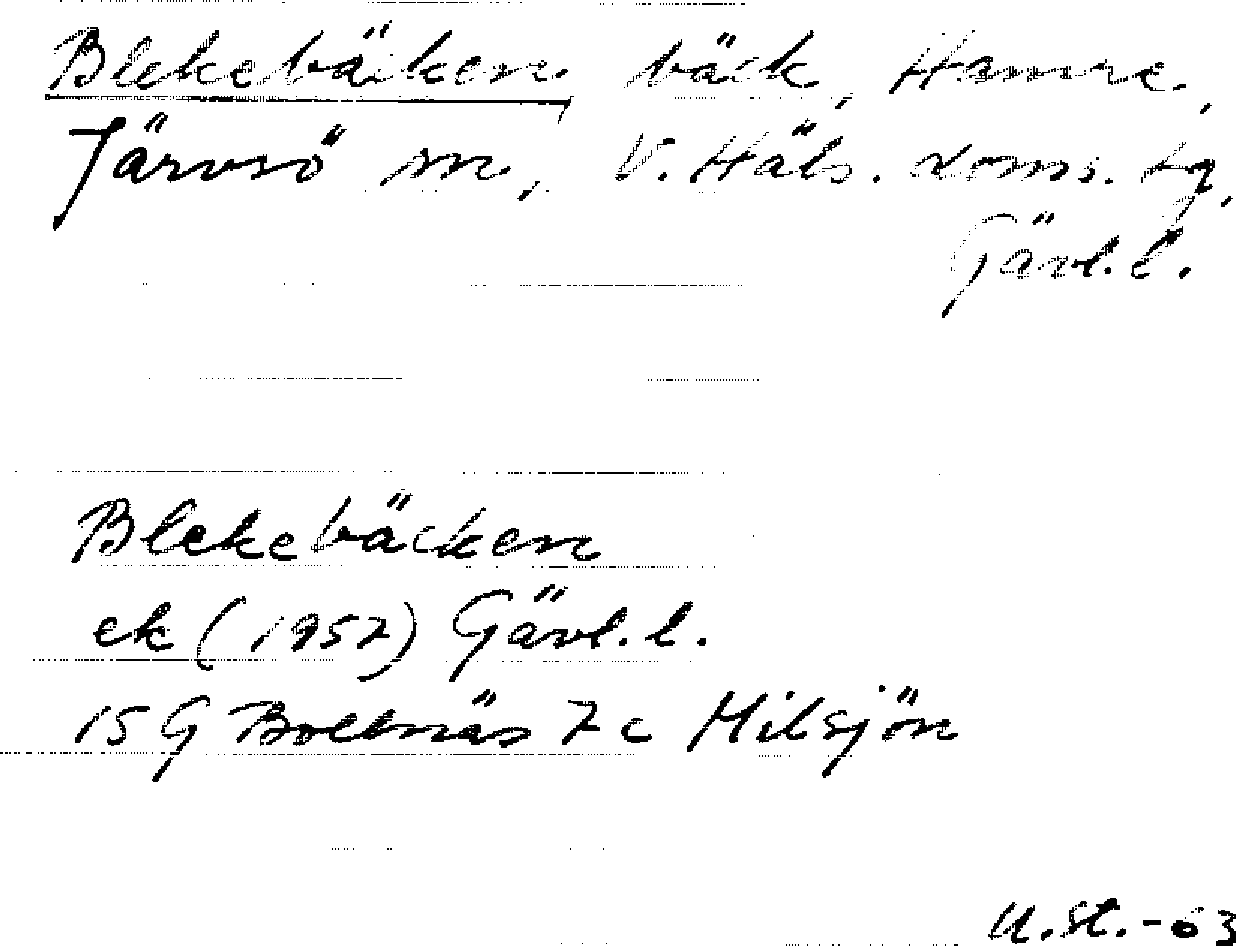 Blekebäcken, bäck, Hamre,
Järvsö sn, V. Häls. doms. tg,
Gävl. l.
Blekebäcken
ek (1957) Gävl. l.
15 G Bollnäs 7 c Hilsjön
U. St. -63